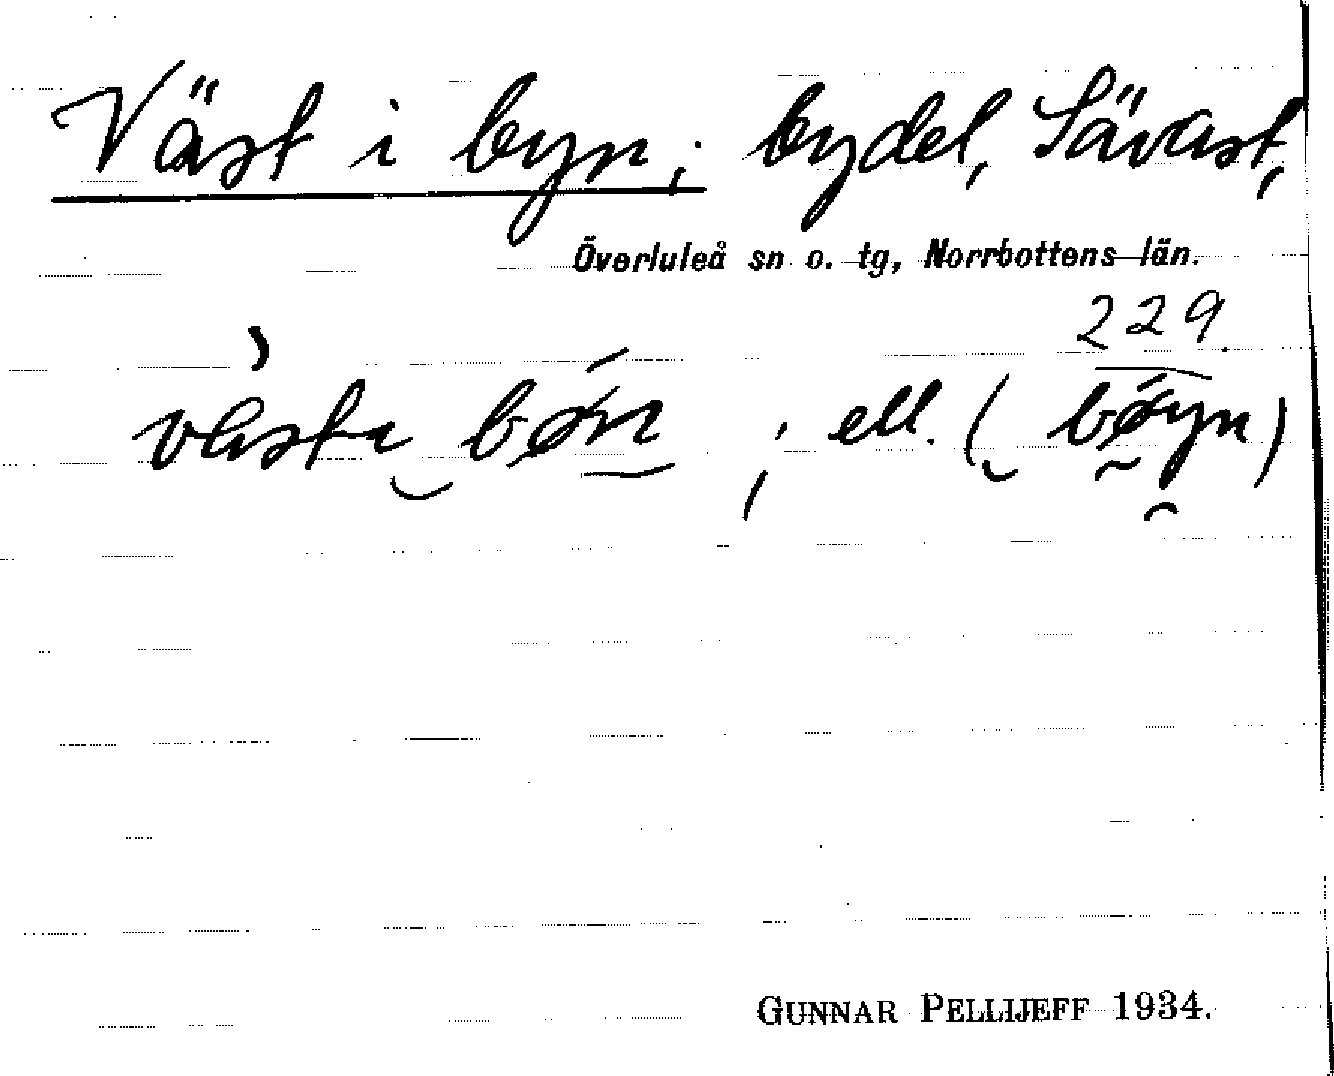 Väst i byn; bydel, Sävast,
Överluleå sn o. tg, Norrbottens län.
229.
västa bøn, ell. (bøyn)
GUNNAR PELLIJEFF 1934.